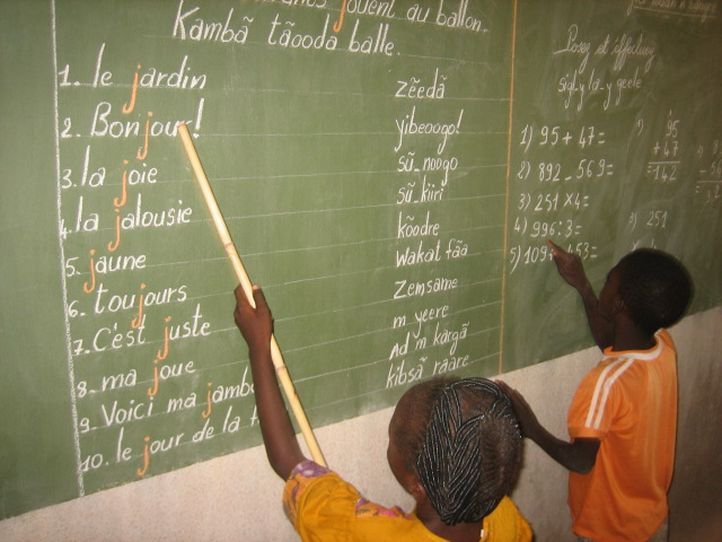 jouent au ballon.
Kambã tãooda balle.
1. le jardin zẽedã
2. Bonjour! yibeoogo!
3. la joie sũ-noogo
4. la jalousie sũ-kiiri
5. jaune kõodre
6. toujours wakat fãa
7. C'est juste zemsame
8. ma joue m yeere
9. Voici ma Ad m kãrgã
10. le jour de la kibsã raare
Posez et effectuez
1) 95 + 47 =
2) 892 - 569 =
3) 251 x 4 =
4) 996 : 3 =
5) 109 453 =
95
+ 47
= 142
251